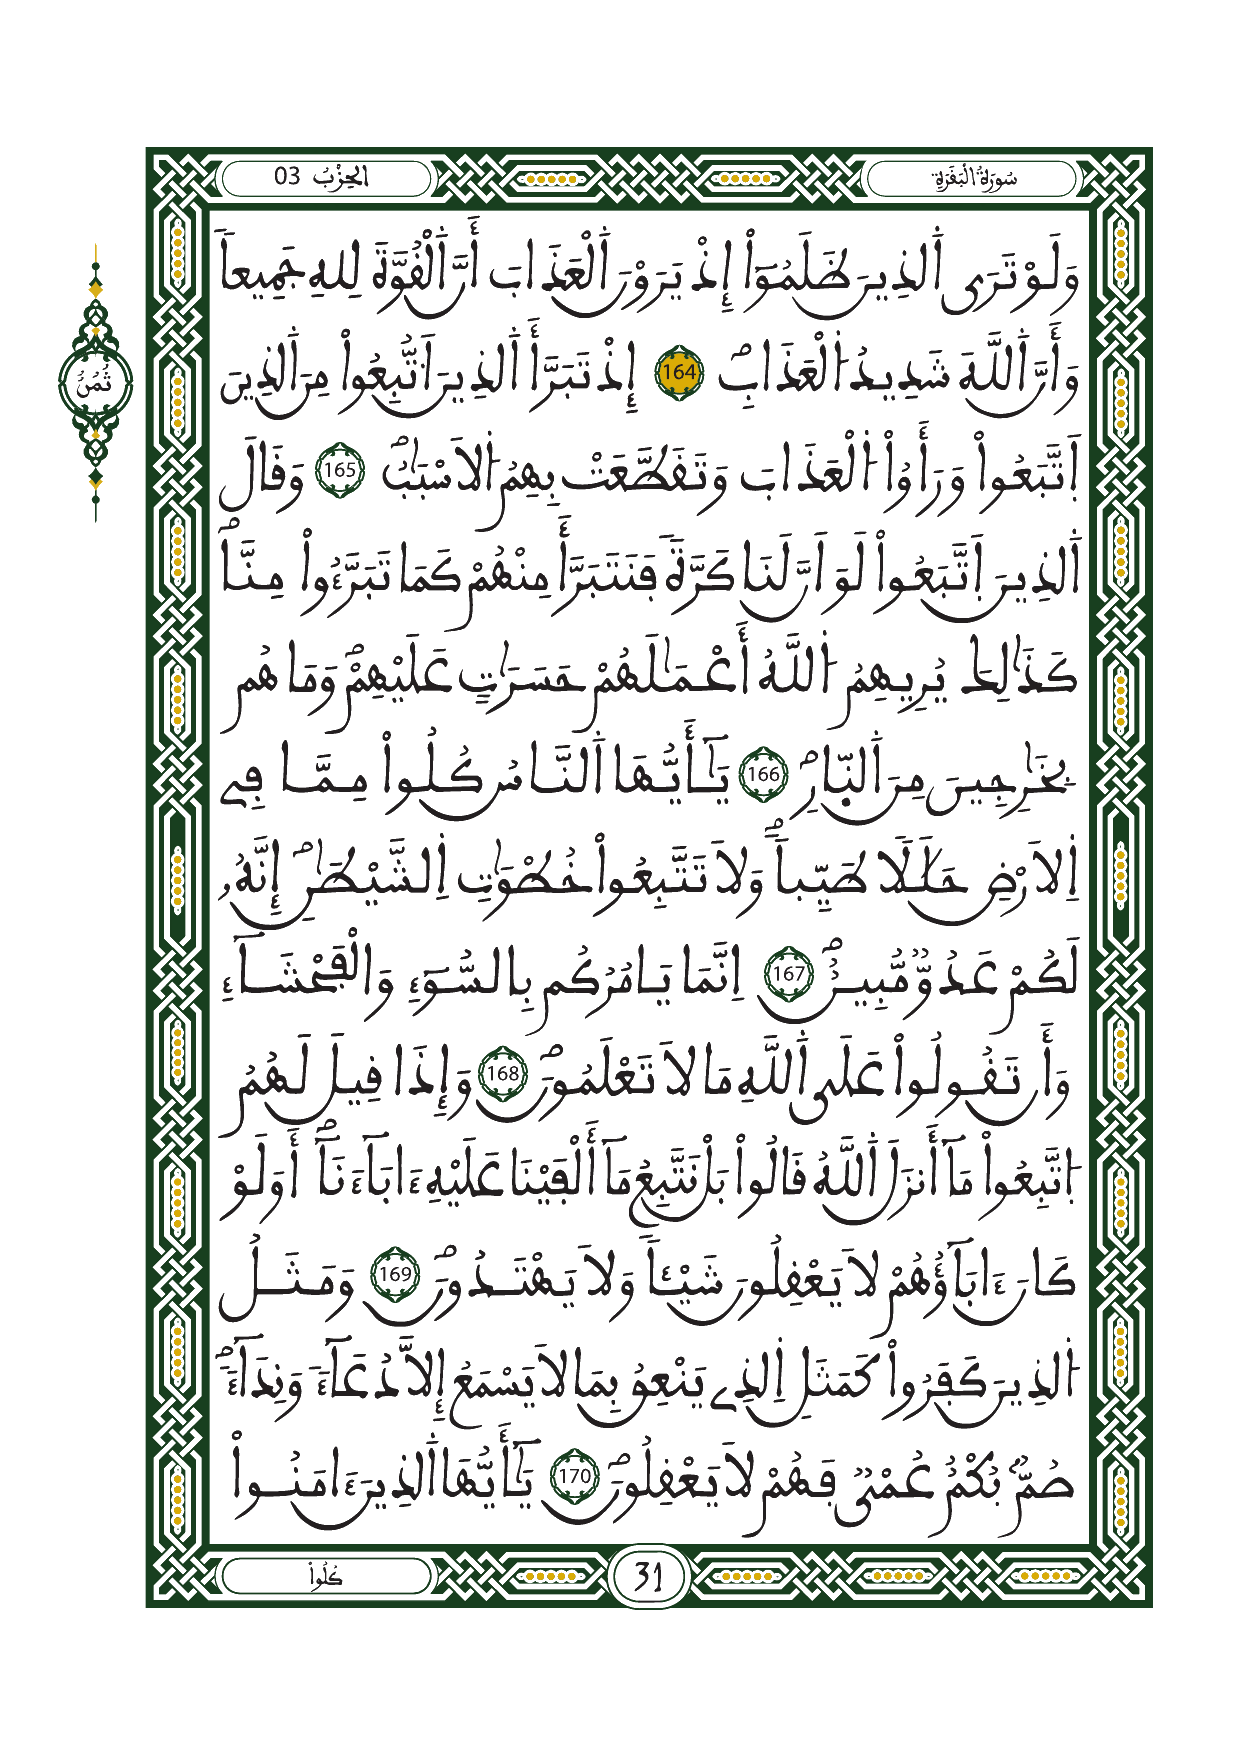 سُورَةُ الْبَقَرَةِ
الحِزْبُ 03
وَلَوْ تَرَى اَ۬لذِينَ ظَلَمُوٓاْ إِذْ يَرَوْنَ اَ۬لْعَذَابَ أَنَّ اَ۬لْقُوَّةَ لِلهِ جَمِيعاٗ
وَأَنَّ اَ۬للَّهَ شَدِيدُ اُ۬لْعَذَابِۖ 164 إِذْ تَبَرَّأَ اَ۬لذِينَ اَ۟تُّبِعُواْ مِنَ اَ۬لذِينَ
ثُمُنُ
اَ۪تَّبَعُواْ وَرَأَوُاْ اُ۬لْعَذَابَ وَتَقَطَّعَتْ بِهِمُ اُ۬لَاسْبَٰبُۖ 165 وَقَالَ
اَ۬لذِينَ اَ۪تَّبَعُواْ لَوَ اَنَّ لَنَا كَرَّةٗ فَنَتَبَرَّأَ مِنْهُمْ كَمَا تَبَرَّءُواْ مِنَّاۖ
كَذَٰلِكَ يُرِيهِمُ اُ۬للَّهُ أَعْمَٰلَهُمْ حَسَرَٰتٍ عَلَيْهِمْۖ وَمَا هُم
بِخَٰرِجِينَ مِنَ اَ۬لنّ۪ارِۖ 166 يَٰٓأَيُّهَا اَ۬لنَّاسُ كُلُواْ مِمَّا فِے
اِ۬لَارْضِ حَلَٰلاٗ طَيِّباٗۖ وَلَا تَتَّبِعُواْ خُطْوَٰتِ اِ۬لشَّيْطَٰنِۖ إِنَّهُۥ
لَكُمْ عَدُوّٞ مُّبِينٌۖ 167 اِنَّمَا يَامُرُكُم بِالسُّوٓءِ وَالْفَحْشَآءِ
وَأَن تَقُولُواْ عَلَى اَ۬للَّهِ مَا لَا تَعْلَمُونَۖ 168 وَإِذَا قِيلَ لَهُمُ
اُ۪تَّبِعُواْ مَآ أَنزَلَ اَ۬للَّهُ قَالُواْ بَلْ نَتَّبِعُ مَآ أَلْفَيْنَا عَلَيْهِ ءَابَآءَنَآۖ أَوَلَوْ
كَانَ ءَابَآؤُهُمْ لَا يَعْقِلُونَ شَيْـٔاٗ وَلَا يَهْتَدُونَۖ 169 وَمَثَلُ
اُ۬لذِينَ كَفَرُواْ كَمَثَلِ اِ۬لذِے يَنْعِقُ بِمَا لَا يَسْمَعُ إِلَّا دُعَآءٗ وَنِدَآءٗۖ
صُمُّۢ بُكْمٌ عُمْيٞ فَهُمْ لَا يَعْقِلُونَۖ 170 يَٰٓأَيُّهَا اَ۬لذِينَ ءَامَنُواْ
31
كُلُواْ